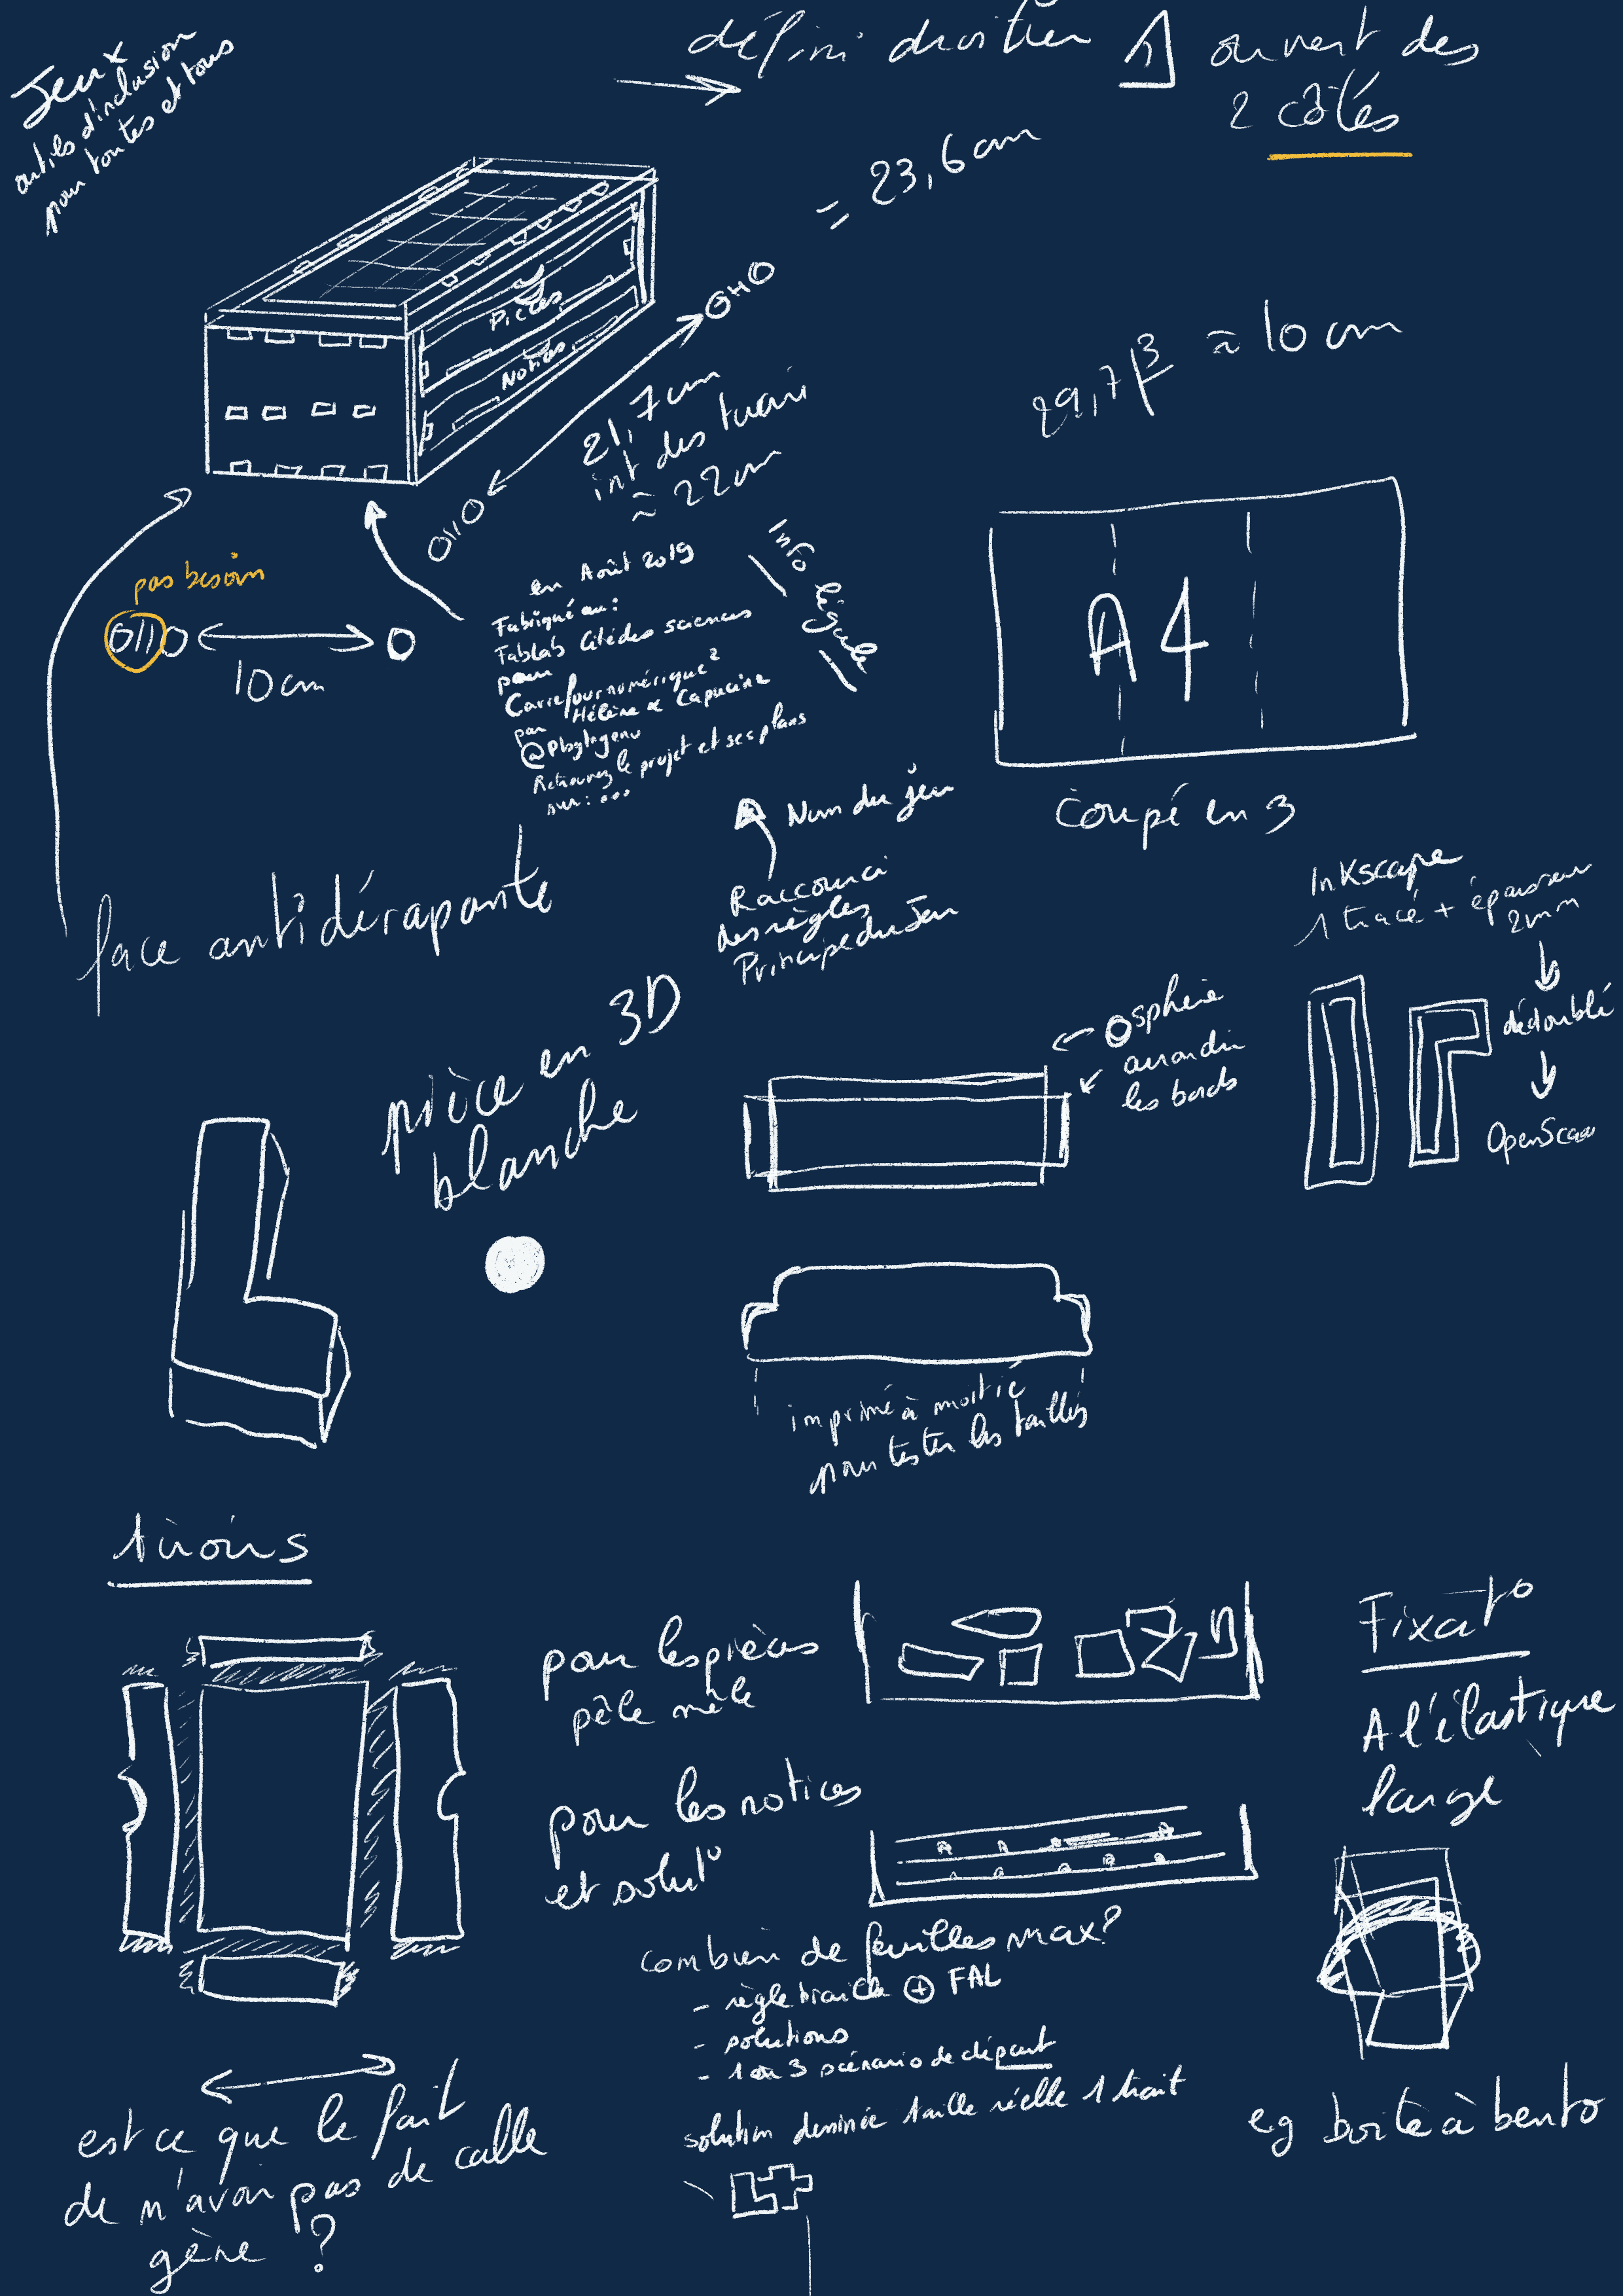 Jeux
outils d'inclusion
pour toutes et tous
défini
ouvert des
2 côtés
= 23,6 cm
Pièces
Notices
21,7 cm
int des
≈ 22 cm
29,7/3 ≈ 10 cm
A4
coupé en 3
pas besoin
10 cm
en Août 2019
Fabriqué au :
FabLab Cité des sciences
pour
Carrefour numérique²
par Hélène & Capucine
Retrouvez le projet et ses plans
sur : ...
Info légale
face antidérapante
Nom du jeu
Raccourci
des règles
Principe du Jeu
InKscape
1 tracé + épaisseur
2mm
dédoublé
OpenScad
sphère
arrondir
les bords
pièce en 3D
blanche
imprimé à moitié
pour tester les tailles
tiroirs
pour les pièces
pêle mêle
pour les notices
et solut°
Fixat°
A l'élastique
large
combien de feuilles max?
- règle braille ⊕ FAL
- solutions
- 1 ou 3 scénario de départ
solution dessinée taille réelle 1 trait
eg boite à bento
est ce que le fait
de n'avoir pas de calle
gène ?